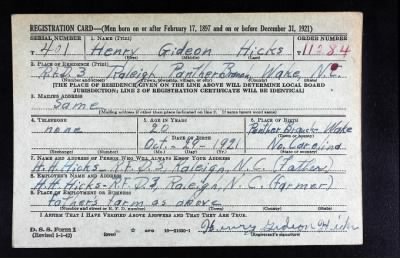 REGISTRATION CARD—(Men born on or after February 17, 1897 and on or before December 31, 1921)
SERIAL NUMBER 1. NAME (Print) ORDER NUMBER
T 401 Henry Gideon Hicks 11284
(First) (Middle) (Last)
2. PLACE OF RESIDENCE (Print)
Rt. D 3, Raleigh, Panther Branch Wake, N.C.
(Number and street) (Town, township, village, or city) (County) (State)
[THE PLACE OF RESIDENCE GIVEN ON THE LINE ABOVE WILL DETERMINE LOCAL BOARD
JURISDICTION; LINE 2 OF REGISTRATION CERTIFICATE WILL BE IDENTICAL]
3. MAILING ADDRESS
Same
[Mailing address if other than place indicated on line 2. If same insert word same]
4. TELEPHONE 5. AGE IN YEARS 6. PLACE OF BIRTH
none 20 Panther Branch-Wake
DATE OF BIRTH (Town or county)
Oct.-29-1921 No. Carolina
(Exchange) (Number) (Mo.) (Day) (Yr.) (State or country)
7. NAME AND ADDRESS OF PERSON WHO WILL ALWAYS KNOW YOUR ADDRESS
H.H. Hicks-Rt. D3, Raleigh, N.C. (Father)
8. EMPLOYER'S NAME AND ADDRESS
H.H. Hicks-Rt. D3, Raleigh, N.C. (Farmer)
9. PLACE OF EMPLOYMENT OR BUSINESS
Father's farm as above
(Number and street or R. F. D. number) (Town) (County) (State)
I AFFIRM THAT I HAVE VERIFIED ABOVE ANSWERS AND THAT THEY ARE TRUE.
D. S. S. Form 1
(Revised 1-1-42) (over) GPO 16—21630-1 Henry Gideon Hicks
(Registrant's signature)